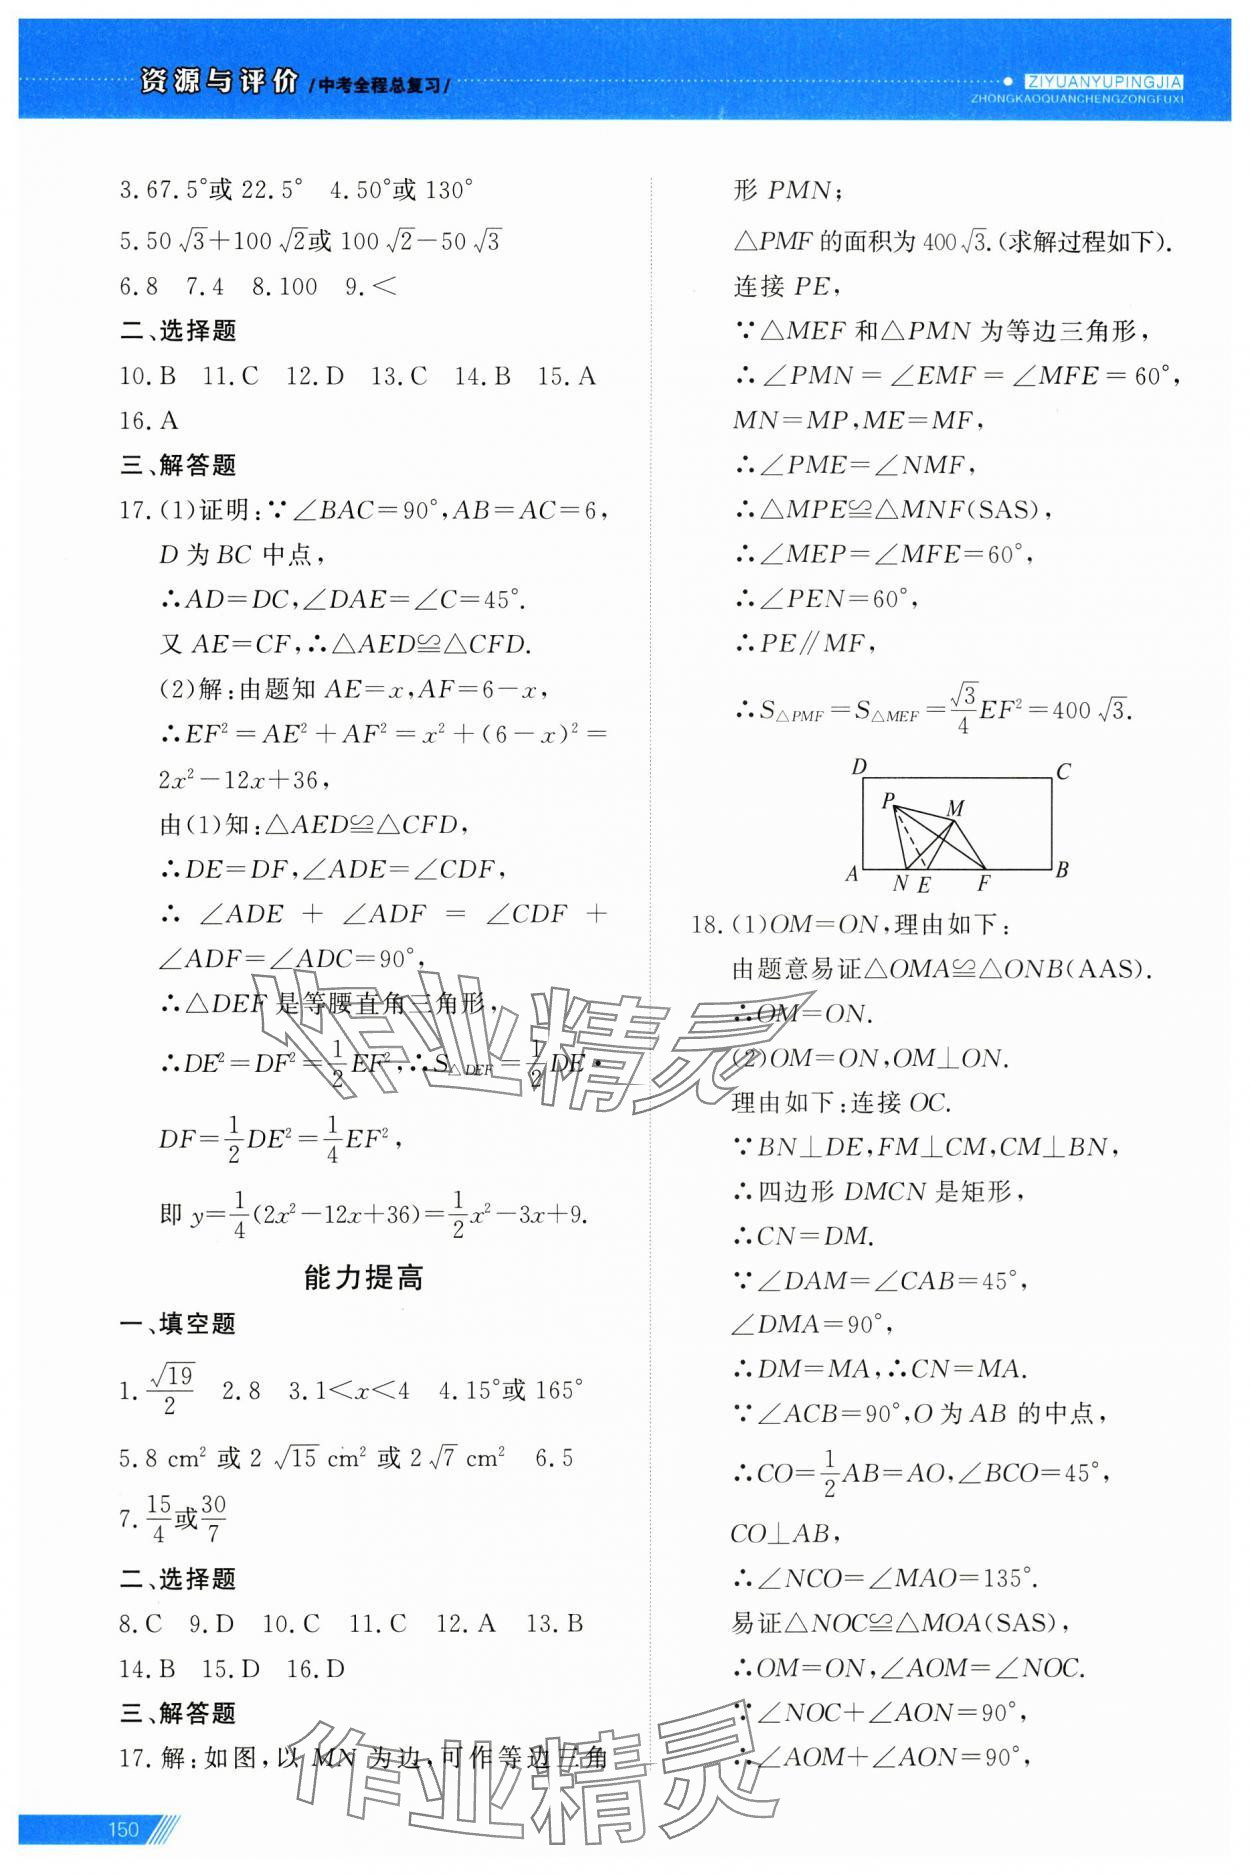 资源与评价 /中考全程总复习/
ZIYUANYUPINGJIA
ZHONGKAOQUANCHENGZONGFUXI
3.67.5°或 22.5° 4.50°或 130°
5.50√3+100√2或 100√2-50√3
6.8 7.4 8.100 9.<
二、选择题
10.B 11.C 12.D 13.C 14.B 15.A
16.A
三、解答题
17.(1)证明:∵∠BAC=90°,AB=AC=6,
D 为 BC 中点,
∴AD=DC,∠DAE=∠C=45°.
又 AE=CF,∴△AED≌△CFD.
(2)解:由题知 AE=x,AF=6-x,
∴EF²=AE²+AF²=x²+(6-x)²=
2x²-12x+36,
由(1)知:△AED≌△CFD,
∴DE=DF,∠ADE=∠CDF,
∴ ∠ADE + ∠ADF = ∠CDF +
∠ADF=∠ADC=90°,
∴△DEF 是等腰直角三角形,
∴DE²=DF²=1/2 EF²,∴S△DEF=1/2 DE·
DF=1/2 DE²=1/4 EF²,
即 y=1/4(2x²-12x+36)=1/2 x²-3x+9.
能力提高
一、填空题
1.√19/2 2.8 3.1<x<4 4.15°或 165°
5.8 cm² 或 2√15 cm² 或 2√7 cm² 6.5
7.15/4或30/7
二、选择题
8.C 9.D 10.C 11.C 12.A 13.B
14.B 15.D 16.D
三、解答题
17.解:如图,以 MN 为边,可作等边三角
形 PMN;
△PMF 的面积为 400√3.(求解过程如下).
连接 PE,
∵△MEF 和△PMN 为等边三角形,
∴∠PMN=∠EMF=∠MFE=60°,
MN=MP,ME=MF,
∴∠PME=∠NMF,
∴△MPE≌△MNF(SAS),
∴∠MEP=∠MFE=60°,
∴∠PEN=60°,
∴PE∥MF,
∴S△PMF=S△MEF=√3/4 EF²=400√3.
D C
P M
A N E F B
18.(1)OM=ON,理由如下:
由题意易证△OMA≌△ONB(AAS).
∴OM=ON.
(2)OM=ON,OM⊥ON.
理由如下:连接 OC.
∵BN⊥DE,FM⊥CM,CM⊥BN,
∴四边形 DMCN 是矩形,
∴CN=DM.
∵∠DAM=∠CAB=45°,
∠DMA=90°,
∴DM=MA,∴CN=MA.
∵∠ACB=90°,O 为 AB 的中点,
∴CO=1/2 AB=AO,∠BCO=45°,
CO⊥AB,
∴∠NCO=∠MAO=135°.
易证△NOC≌△MOA(SAS),
∴OM=ON,∠AOM=∠NOC.
∵∠NOC+∠AON=90°,
∴∠AOM+∠AON=90°,
作业精灵
作业精灵
150